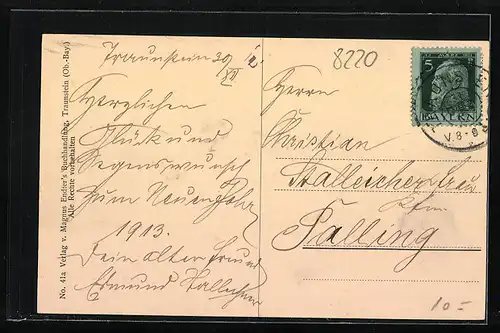 Traunstein 30/XII 12
Herzlichen
Glück und
Segenswunsch
zum Neuen Jahr
1913.
Dein alter Freund
Edmund
No. 41a Verlag v. Magnus Endter's Buchhandlung, Traunstein (Ob.-Bay.)
Alle Rechte vorbehalten
8220
5
BAYERN
V. 8-9
Herrn
Christian
Palling
10-